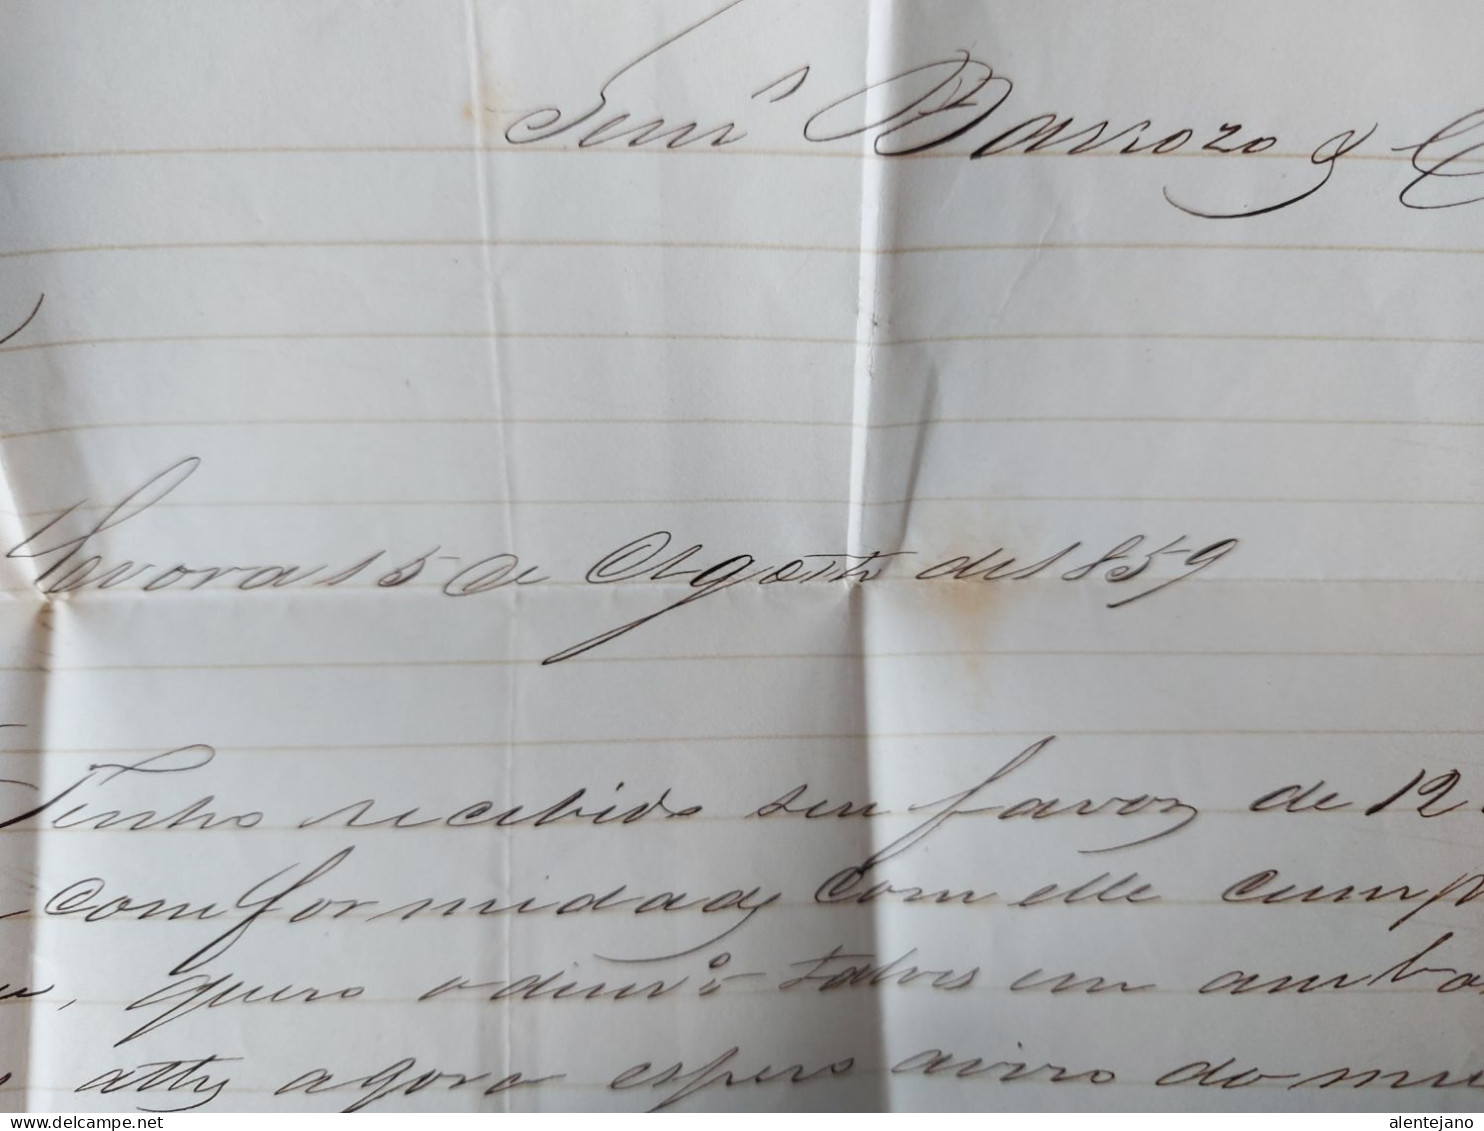 Senrs Barrozo & C
Tavora 15 de Agosto de 1859
Tenho recebido seu favor de 12
comformidade com elle cump
quero o dinrº talves em ambo
atté agora espero aviso do me
alentejano
delcampe.net